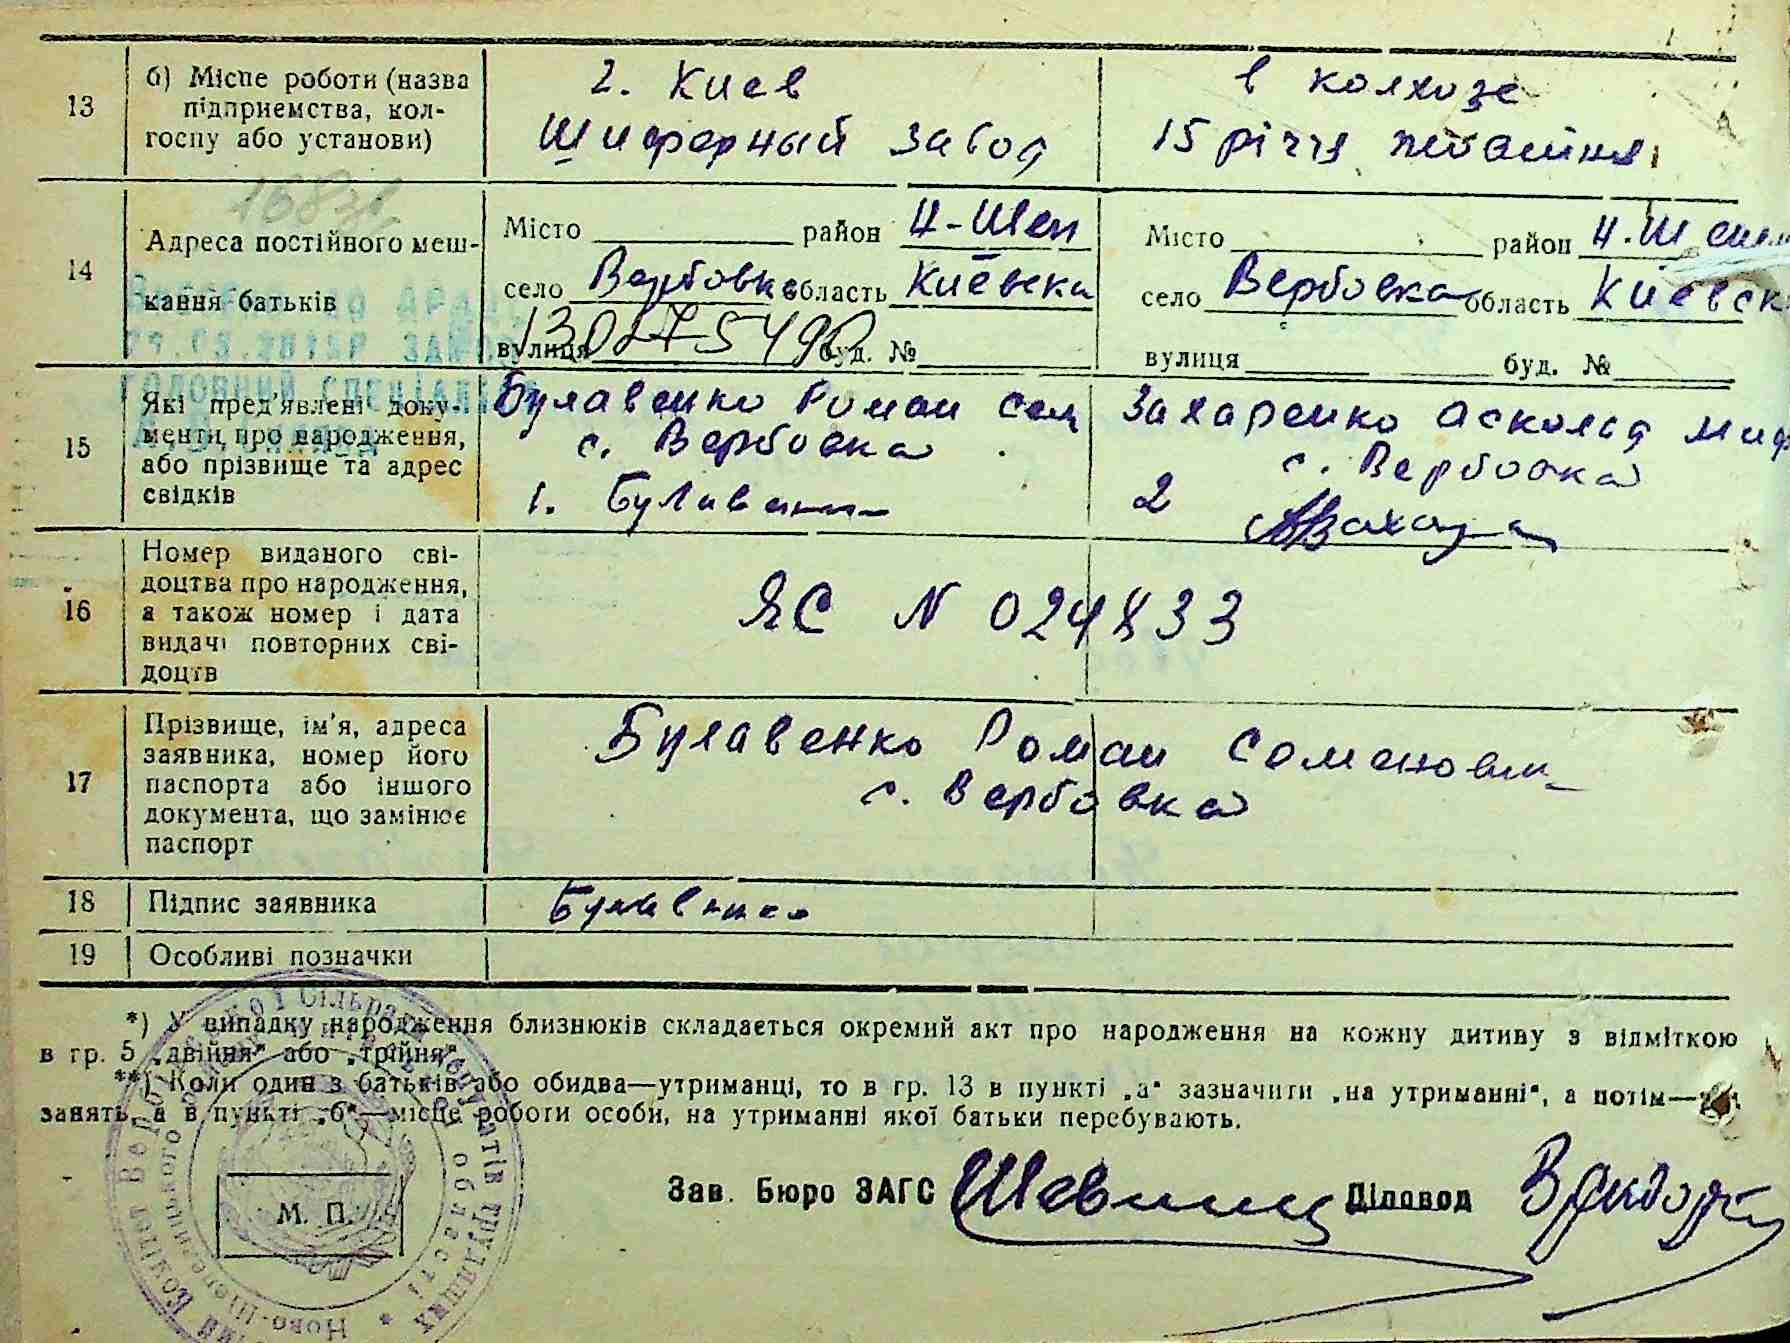 13
б) Місце роботи (назва
підприємства, кол-
госпу або установи)
г. Киев
Шиферный завод
в колхозе
15 річчя
168
14
Адреса постійного меш-
кання батьків
Місто район Н-Шеп
село Вербовка область Киевска
вулиця буд. №
1302754
Місто район Н. Шепе
село Вербовка область Киевск
вулиця буд. №
головний спеціаліст
15
Які пред'явлені доку-
менти про народження,
або прізвище та адрес
свідків
Булавенко Роман Сем
с. Вербовка
1. Булавенко
Захаренко Аскольд
с. Вербовка
2
16
Номер виданого сві-
доцтва про народження,
а також номер і дата
видачі повторних сві-
доцтв
ЯС N 024833
17
Прізвище, ім'я, адреса
заявника, номер його
паспорта або іншого
документа, що замінює
паспорт
Булавенко Роман Семенович
с. Вербовка
18
Підпис заявника
Булавенко
19
Особливі позначки
*) У випадку народження близнюків складається окремий акт про народження на кожну дитину з відміткою
в гр. 5 „двійня" або „трійня".
**) Коли один з батьків або обидва—утриманці, то в гр. 13 в пункті „а" зазначити „на утриманні", а потім—
занять, а в пункті „б"—місце роботи особи, на утриманні якої батьки перебувають.
М. П.
Зав. Бюро ЗАГС
Діловод